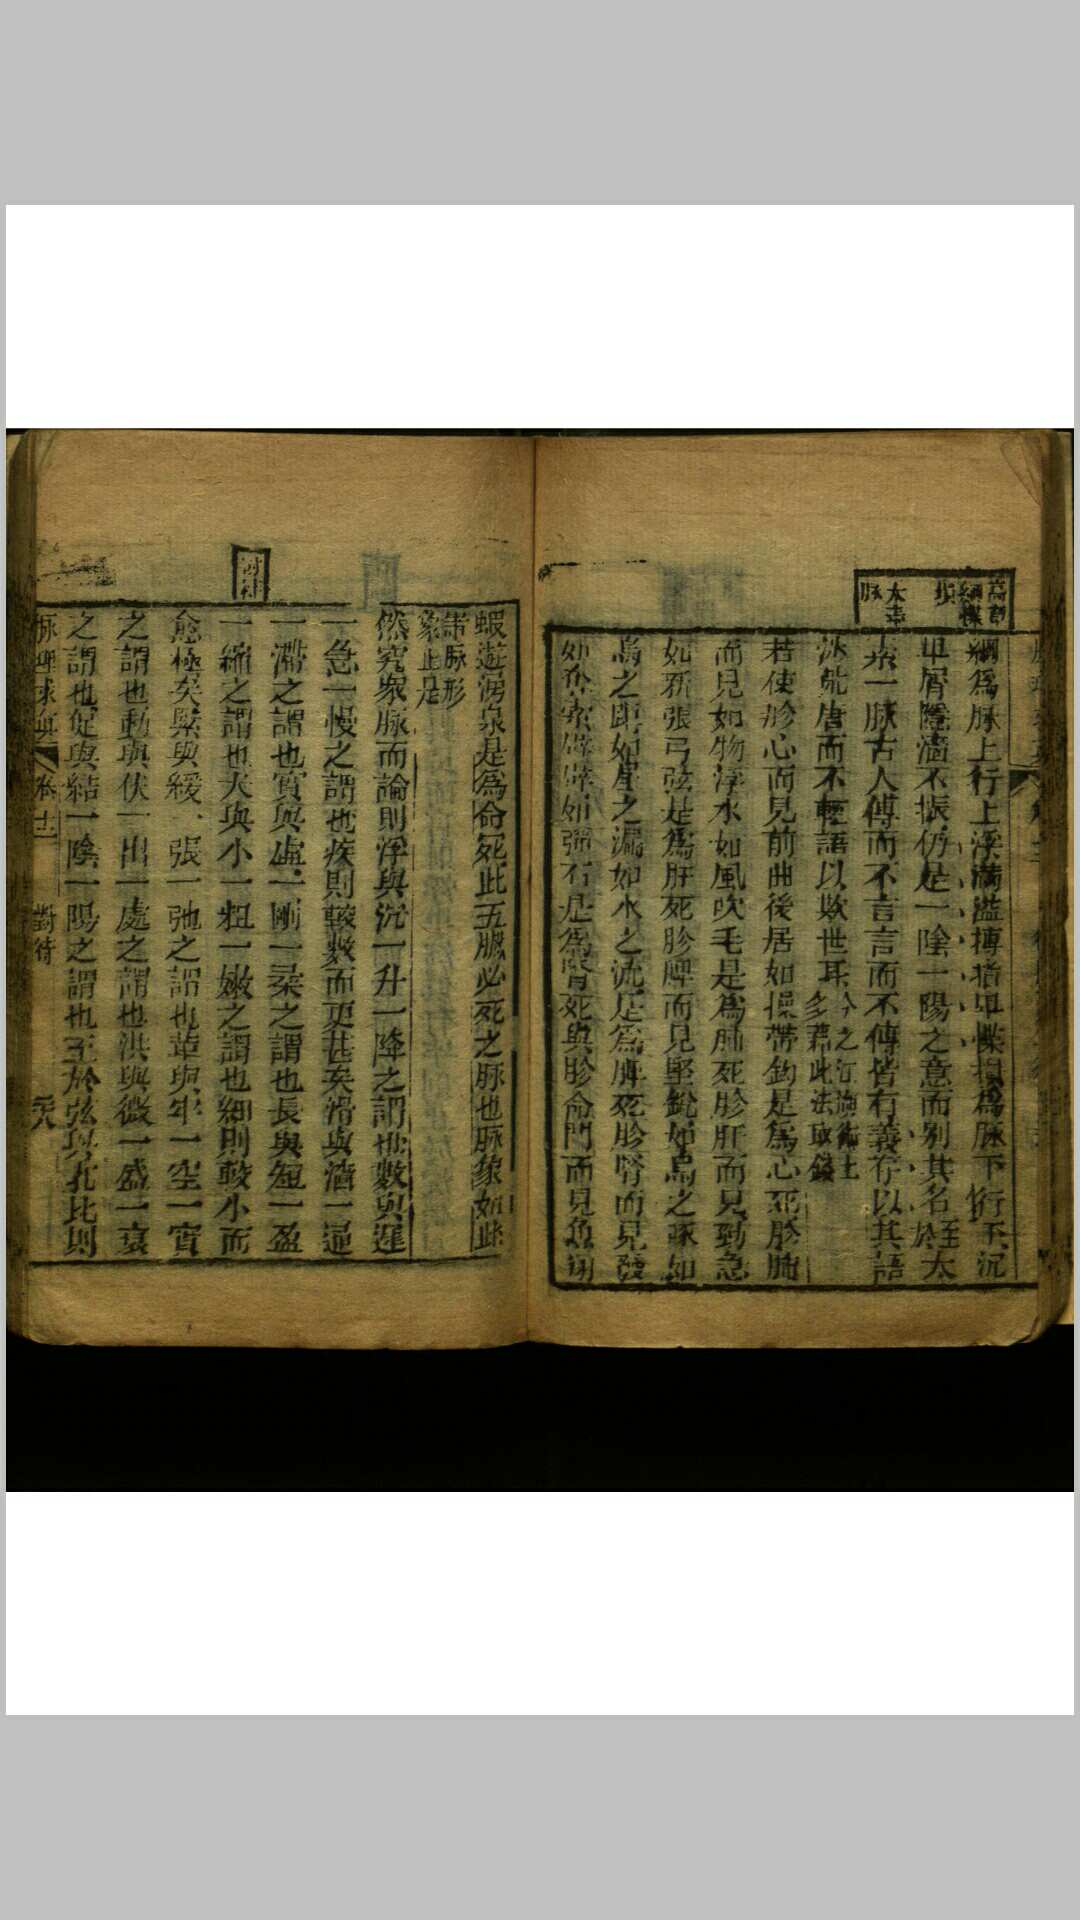 高章
綱慄
損
太素
脉
綱爲脉上行上浮滿溢摶揩卑慄損爲脉下行至沉
卑屑隱濇不振仍是一陰一陽之意而别其名至於太
素一脉古人傳而不言言而不傳皆有義存以其語
涉荒唐而不輕語以欺世耳
今之江湖術士
多藉此法取錢
若使胗心而見前曲後居如操帶鈎是爲心死胗肺
而見如物浮水如風吹毛是爲肺死胗肝而見勁急
如新張弓弦是爲肝死胗脾而見堅銳如烏之啄如
鳥之距如屋之漏如水之流是爲脾死胗腎而見發
如奪索辟辟如彈石是爲腎死與胗命門而見魚翔
蝦遊湧泉是爲命死此五臟必死之脉也脉象如此
諸脉形
象止是
然究衆脉而論則浮與沉一升一降之謂也數與遲
一急一慢之謂也疾則較數而更甚矣滑與濇一通
一滯之謂也實與虛一剛一柔之謂也長與短一盈
對待
一縮之謂也大與小一粗一嫩之謂也細則較小而
愈極矣緊與緩一張一弛之謂也革與牢一空一實
之謂也動與伏一出一處之謂也洪與微一盛一衰
之謂也促與結一陰一陽之謂也至於弦與芤比則
脉理求真
卷十二
對待